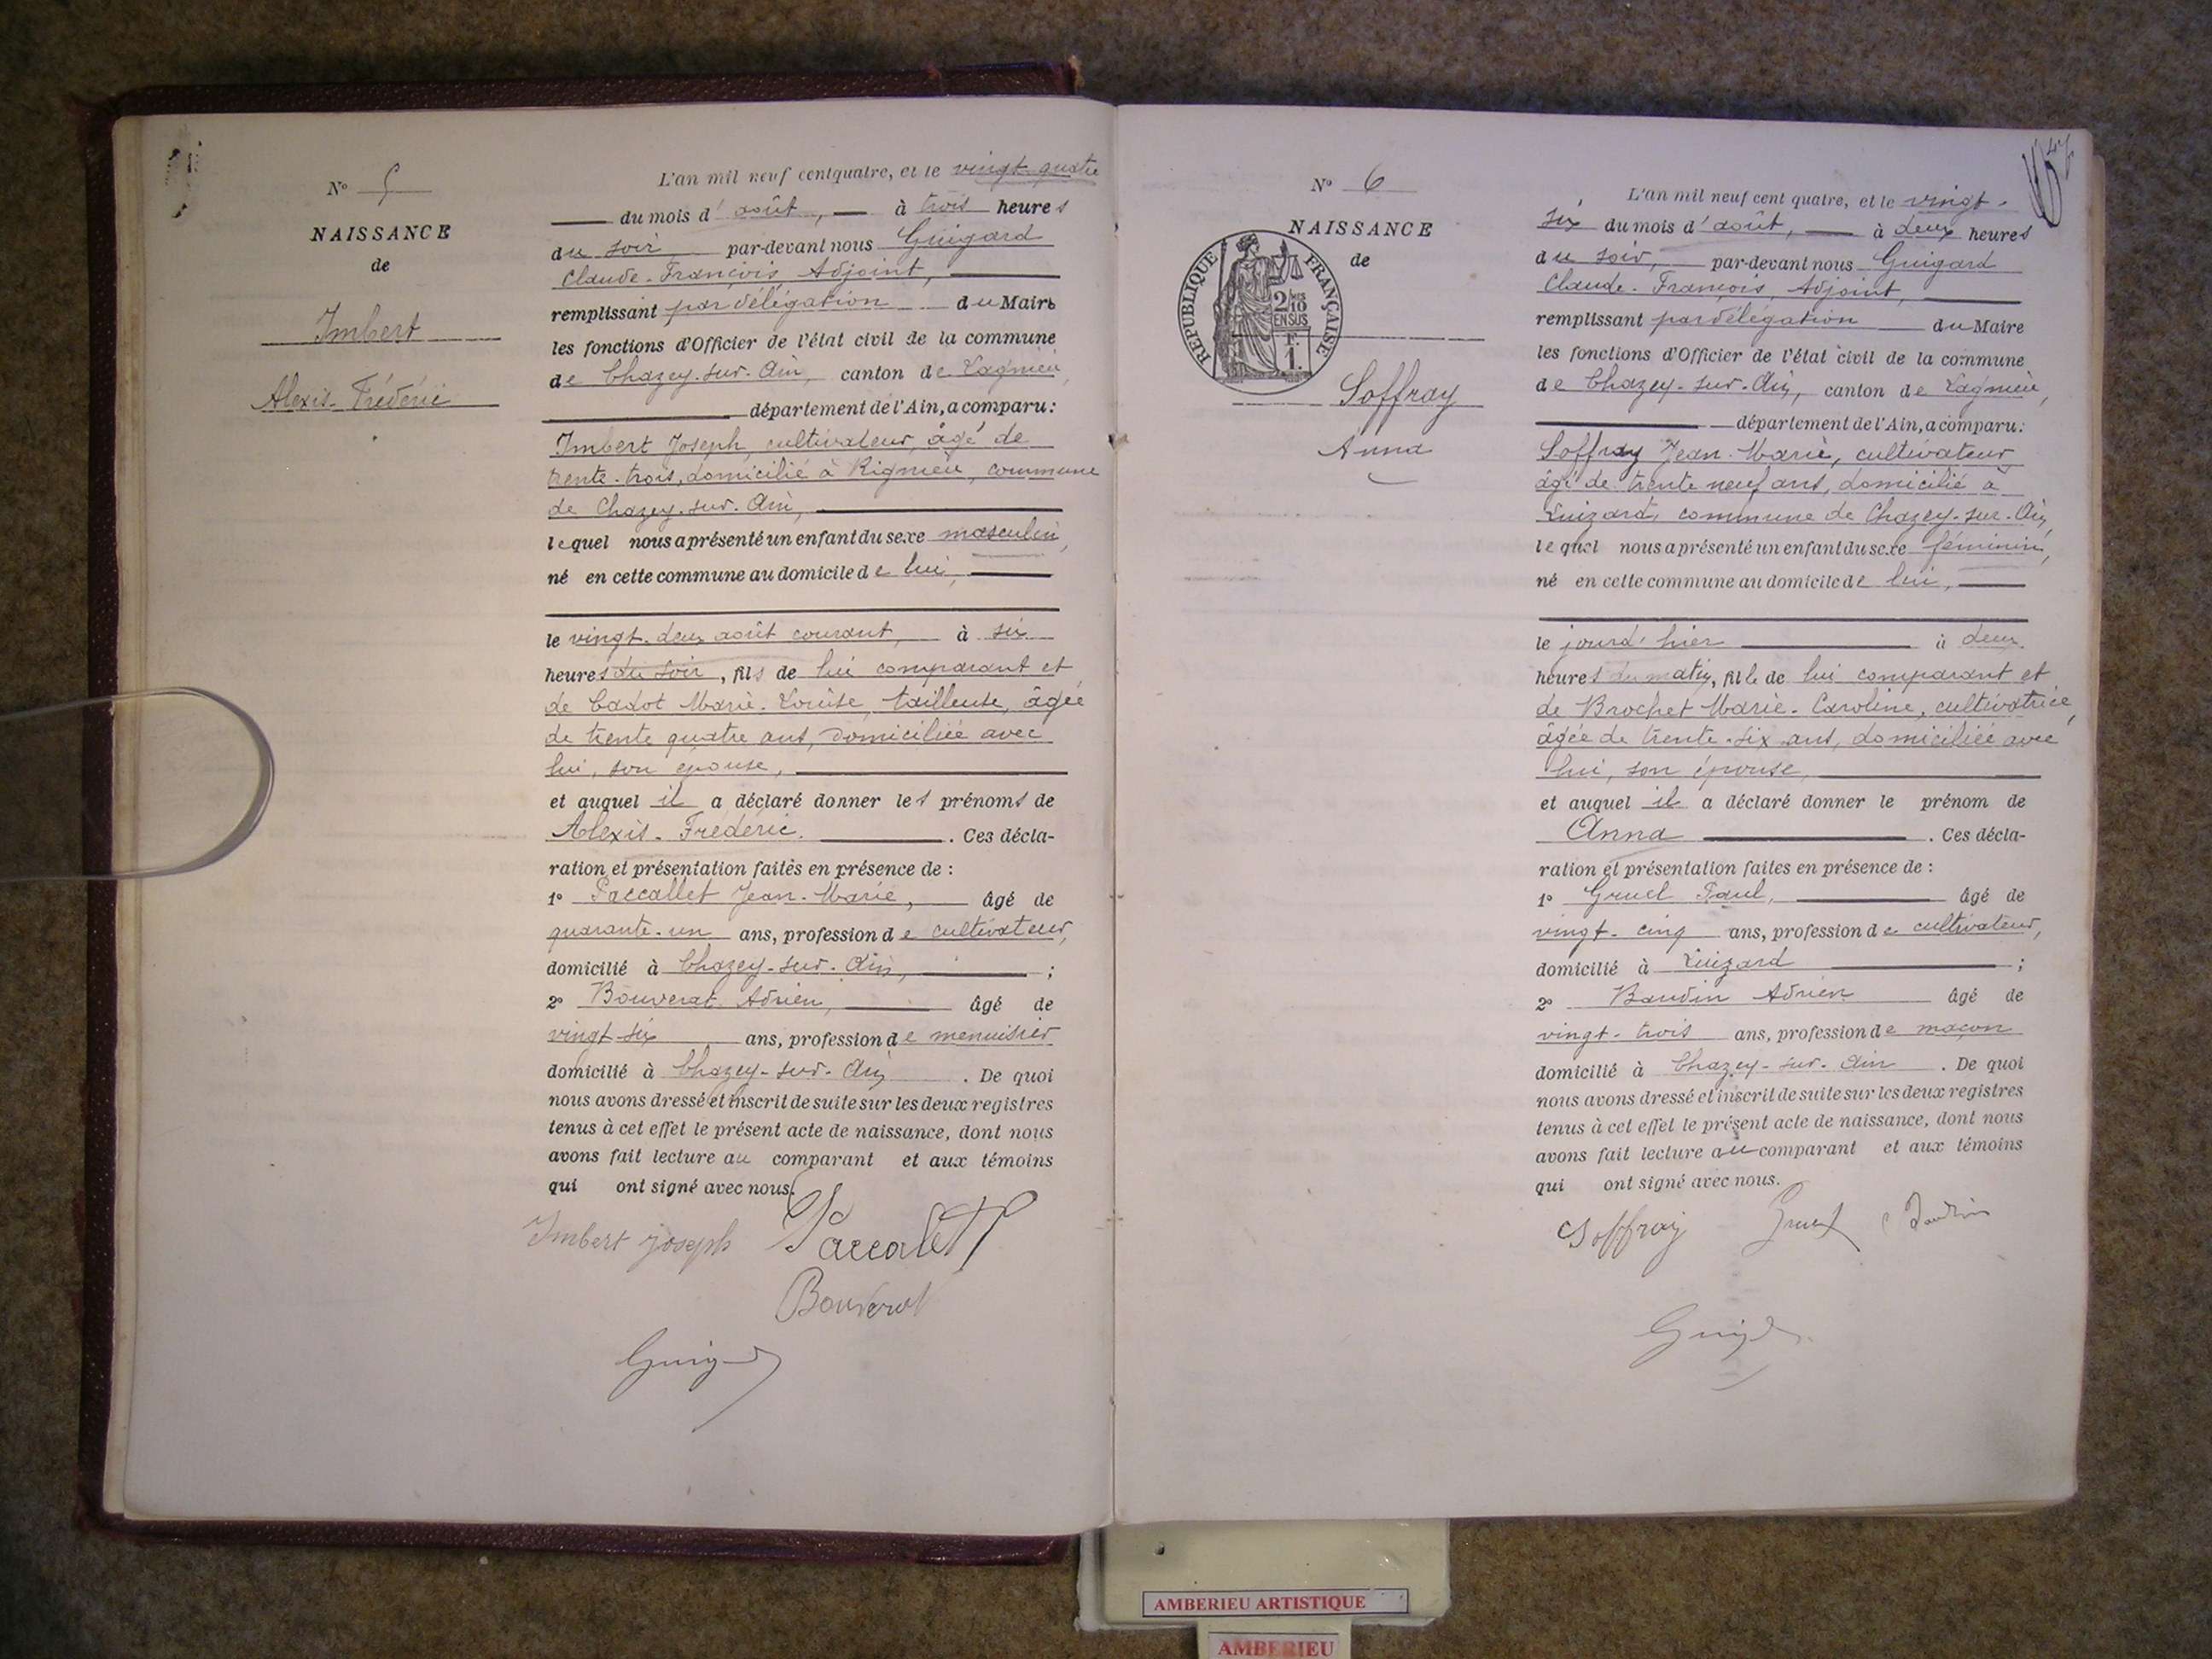 N° 5
NAISSANCE
de
Imbert
Alexis-Frédéric
L'an mil neuf cent quatre, et le vingt-quatre
du mois d'août, à trois heures
du soir par-devant nous Guigard
Claude-François, Adjoint,
remplissant par délégation du Maire
les fonctions d'Officier de l'état civil de la commune
de Chazey-sur-Ain, canton de Lagnieu,
département de l'Ain, a comparu:
Imbert Joseph, cultivateur, âgé de
trente-trois, domicilié à Rignieu, commune
de Chazey-sur-Ain,
lequel nous a présenté un enfant du sexe masculin,
né en cette commune au domicile de lui,
le vingt-deux août courant, à six
heures du soir, fils de lui comparant et
de Cadot Marie-Louise, tailleuse, âgée
de trente quatre ans, domiciliée avec
lui, son épouse,
et auquel il a déclaré donner les prénoms de
Alexis-Frédéric. Ces décla-
ration et présentation faites en présence de :
1° Paccallet Jean-Marie, âgé de
quarante-un ans, profession de cultivateur,
domicilié à Chazey-sur-Ain, ;
2° Bouverat Adrien, âgé de
vingt-six ans, profession de menuisier
domicilié à Chazey-sur-Ain . De quoi
nous avons dressé et inscrit de suite sur les deux registres
tenus à cet effet le présent acte de naissance, dont nous
avons fait lecture au comparant et aux témoins
qui ont signé avec nous.
Imbert joseph Paccalet
Bouverat
Guigard
N° 6
NAISSANCE
de
REPUBLIQUE FRANÇAISE
2/10
EN SUS
1 F.
Soffray
Anna
L'an mil neuf cent quatre, et le vingt-
six du mois d'août, à deux heures
du soir, par-devant nous Guigard
Claude-François, Adjoint,
remplissant par délégation du Maire
les fonctions d'Officier de l'état civil de la commune
de Chazey-sur-Ain, canton de Lagnieu,
département de l'Ain, a comparu:
Soffray Jean-Marie, cultivateur
âgé de trente neuf ans, domicilié à
Luizard, commune de Chazey-sur-Ain,
lequel nous a présenté un enfant du sexe féminin,
né en cette commune au domicile de lui,
le jourd'hier à deux
heures du matin, fille de lui comparant et
de Brochet Marie-Caroline, cultivatrice,
âgée de trente-six ans, domiciliée avec
lui, son épouse,
et auquel il a déclaré donner le prénom de
Anna . Ces décla-
ration et présentation faites en présence de :
1° Gruel Paul, âgé de
vingt-cinq ans, profession de cultivateur,
domicilié à Luizard ;
2° Baudin Adrien âgé de
vingt-trois ans, profession de maçon
domicilié à Chazey-sur-Ain . De quoi
nous avons dressé et inscrit de suite sur les deux registres
tenus à cet effet le présent acte de naissance, dont nous
avons fait lecture au comparant et aux témoins
qui ont signé avec nous.
Soffray Gruel Baudin
Guigard
AMBERIEU ARTISTIQUE
AMBERIEU